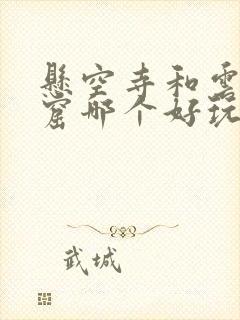 懸空寺和雲
窟哪个好玩
武城